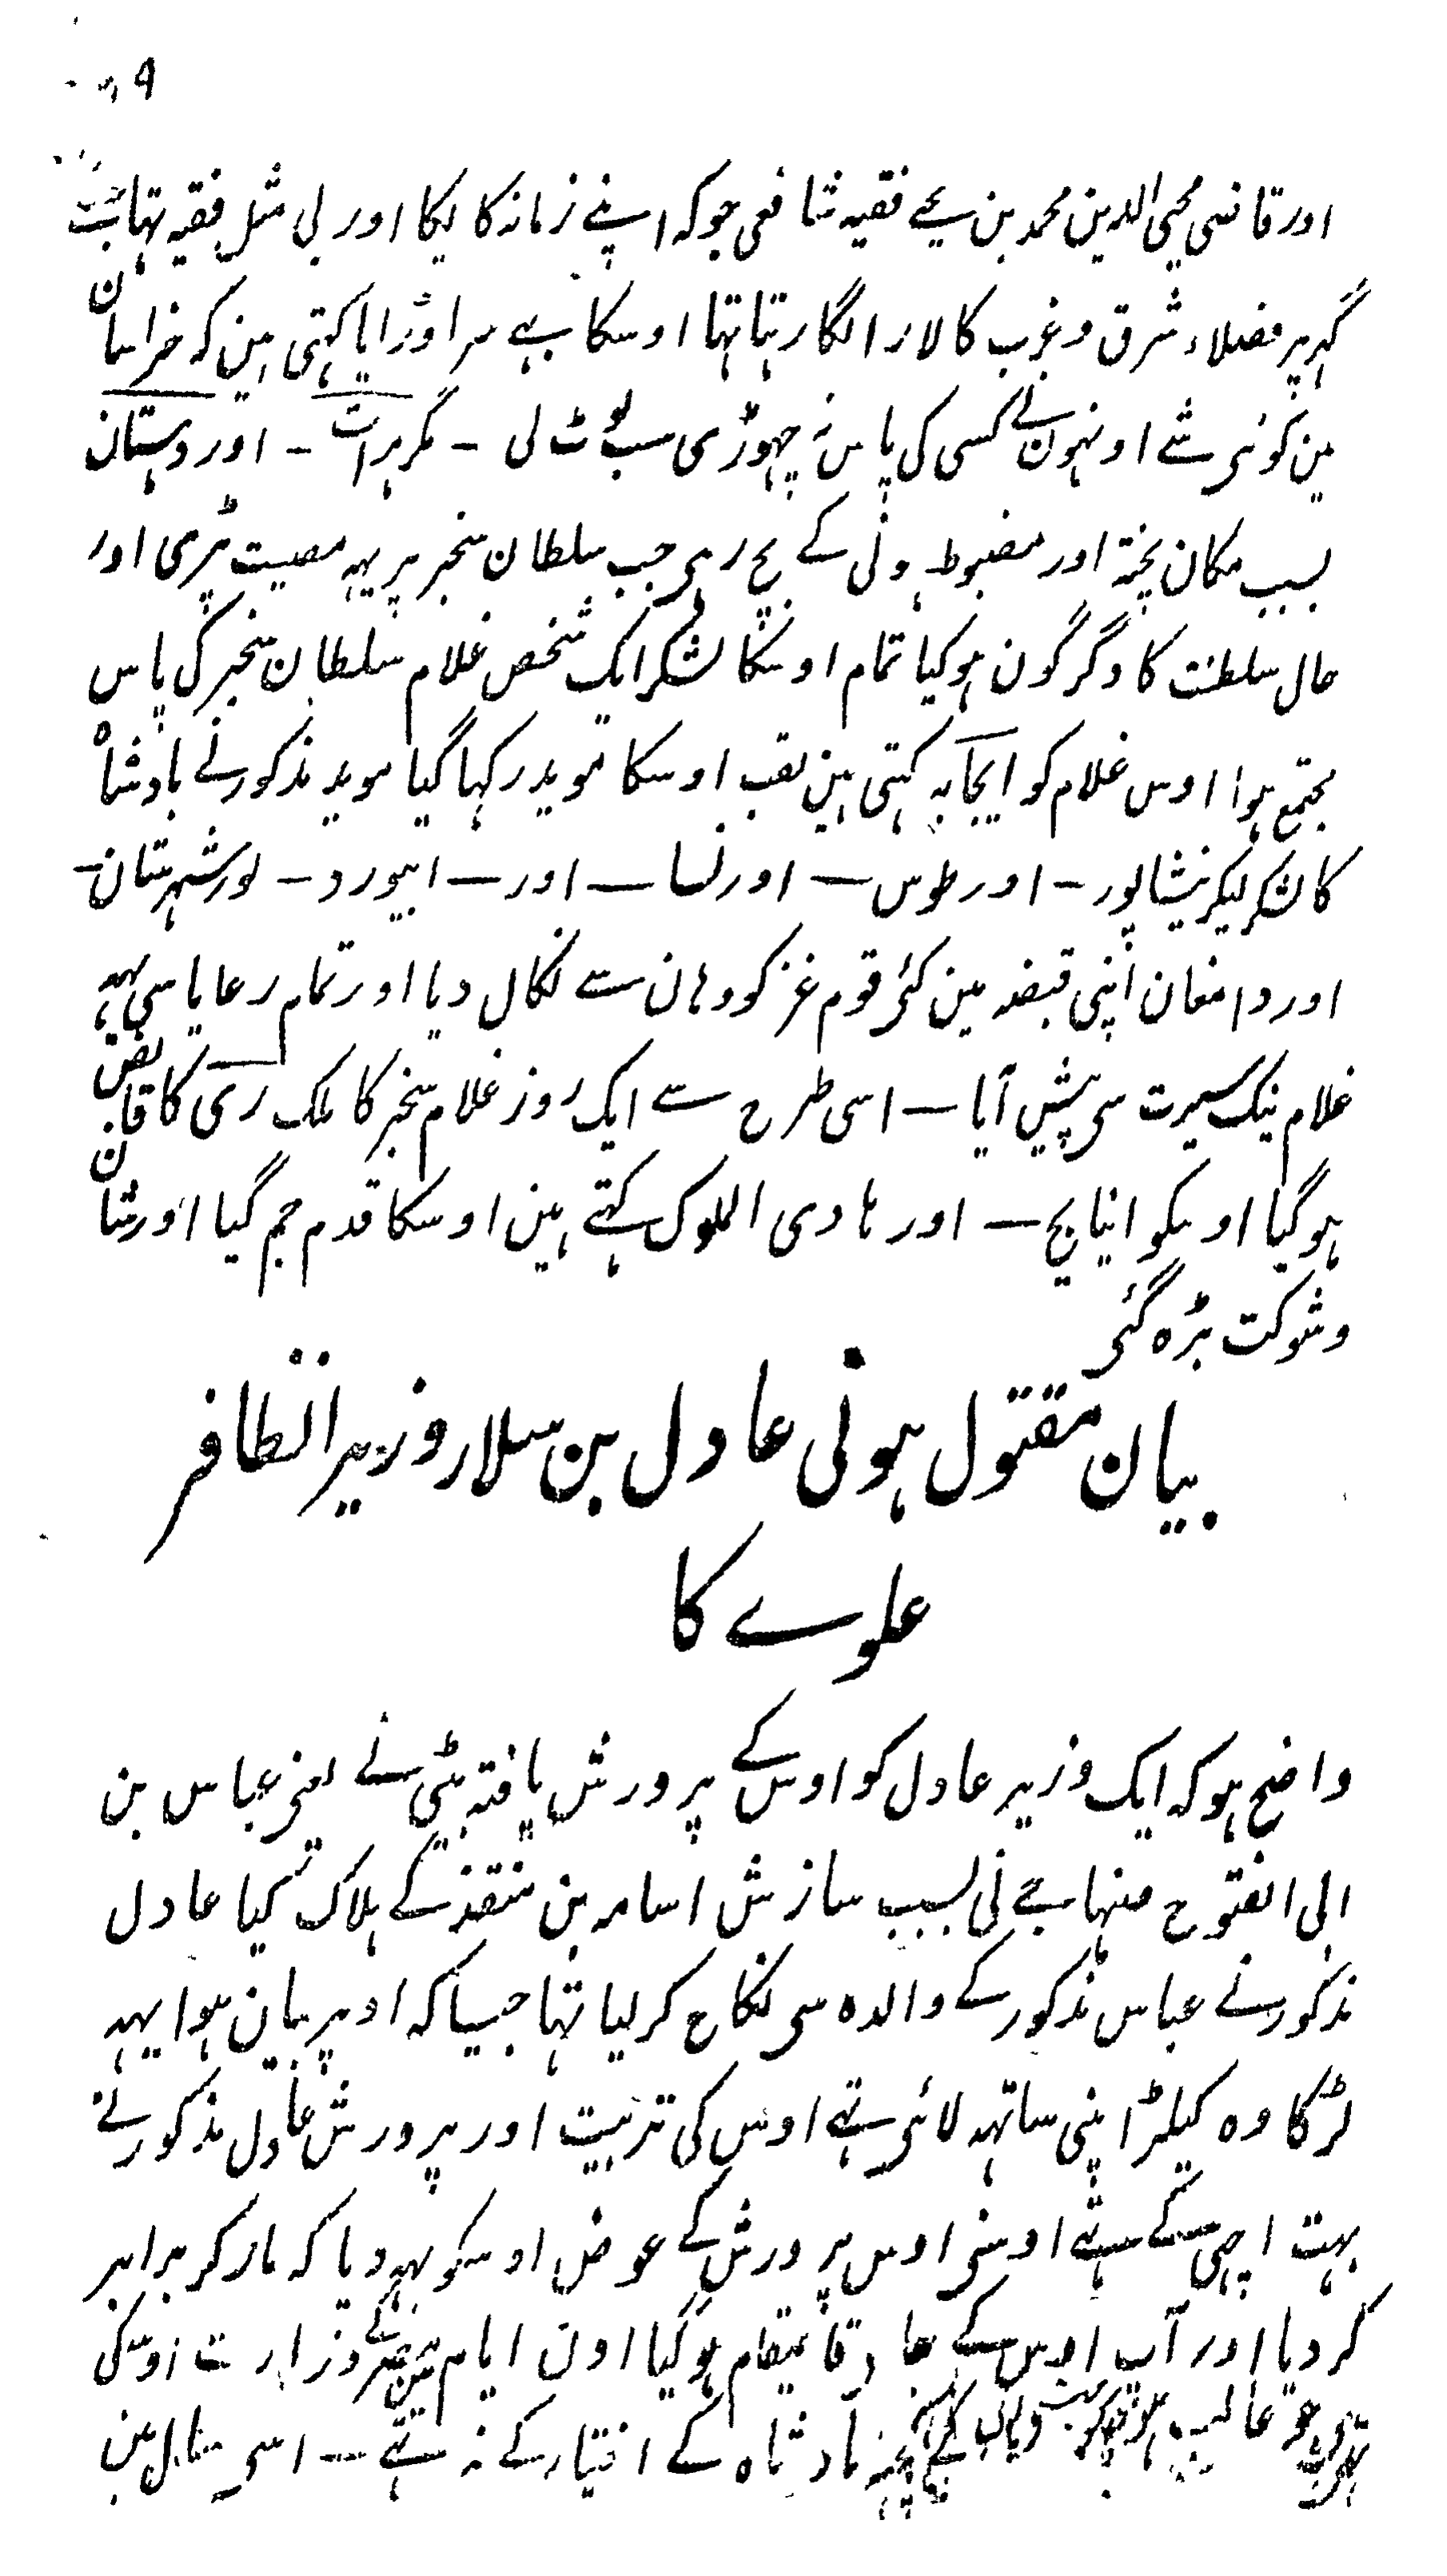 ۹
اور قاضی محیی الدین محمد بن یحے فقیہ شافعی جو کہ اپنے زمانہ کا یکا اور بی مثل فقیہ تہا جسکے
گہر پر فضلاء شرق و غرب کا لارا لگا رہتا تہا اوسکا بہے سر اوڑایا کہتی ہین کہ خراسان
مین کوئی شے اونہون نے کسی کی پاس نہ چہوڑی سب لوٹ لی - مگر ہرات - اور دہستان
بسبب مکان پختہ اور مضبوط ہونی کے بچ رہی جب سلطان سنجر پر یہہ مصیبت پڑی اور
حال سلطنت کا دگرگون ہو گیا تمام اوسکا لشکر ایک شخص غلام سلطان سنجر کی پاس
مجتمع ہوا اوس غلام کو ایجابہ کہتی ہین لقب اوسکا موید رکہا گیا موید مذکور نے بادشاہ
کا لشکر لیکر نیشاپور - اور طوس - اور نسا - اور - ابیورد - اور شہرستان -
اور دامغان اپنی قبضہ مین کئی قوم غز کو وہان سے نکال دیا اور تمام رعایا سی یہہ
غلام نیک سیرت سی پیش آیا - اسی طرح سے ایک روز غلام سنجر کا ملک ری کا قابض
ہو گیا اوسکو اینانج - اور ہادی الملوک کہتے ہین اوسکا قدم جم گیا اور شان
و شوکت بڑہ گئی
بیان مقتول ہونی عادل بن سلار وزیر الظافر
علوے کا
واضح ہو کہ ایک وزیر عادل کو اوس کے پرورش یافتہ بیٹی نے یعنی عباس بن
ابی الفتوح صنہاجے نی بسبب سازش اسامہ بن منقذ کے ہلاک کیا عادل
مذکور نے عباس مذکور کے والدہ سی نکاح کر لیا تہا جیسا کہ اوپر بیان ہوا یہہ
لڑکا وہ گیلڑ اپنی ساتہہ لائی تہے اوس کی تربیت اور پرورش عادل مذکور نے
بہت اچہی کے تہے اوسنی اوس پرورش کے عوض اوسکو یہہ دیا کہ مار کر برابر
کر دیا اور آپ اوس کے جا قائمقام ہو گیا اون ایام مین مصر کے وزارت اوسکی
جو غالب بادشاہ کے اختیار کے نہ تہے - اسی سال مین